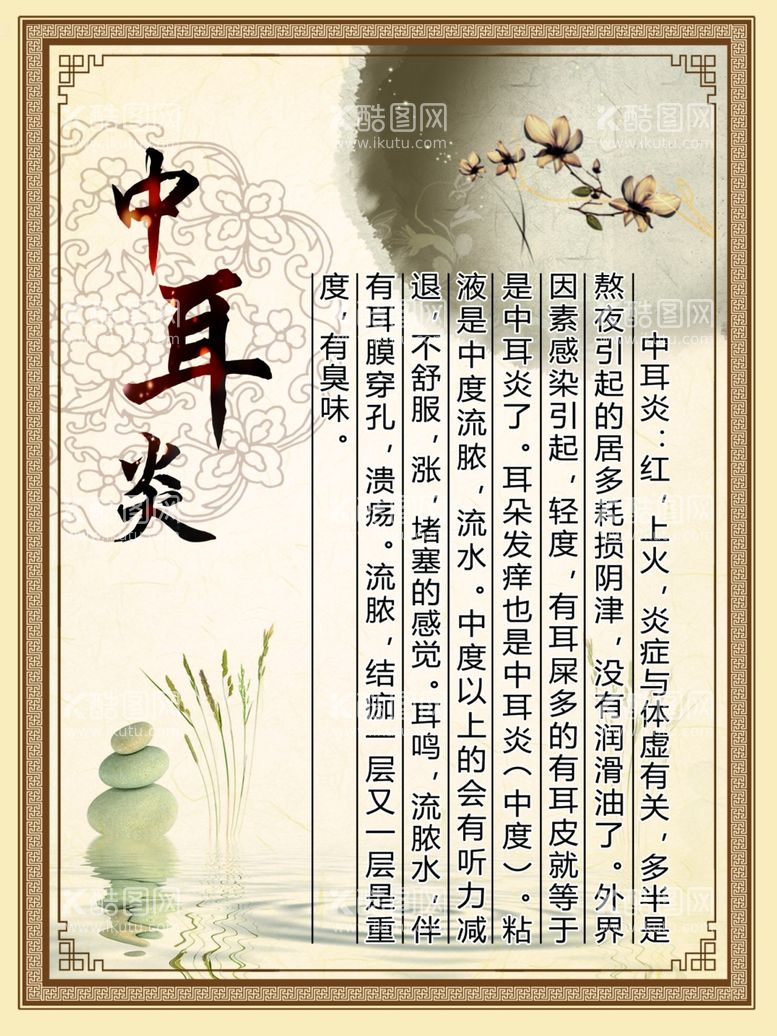 中耳炎
中耳炎：红，上火，炎症与体虚有关，多半是
熬夜引起的居多耗损阴津，没有润滑油了。外界
因素感染引起，轻度，有耳屎多的有耳皮就等于
是中耳炎了。耳朵发痒也是中耳炎（中度）。粘
液是中度流脓，流水。中度以上的会有听力减
退，不舒服，涨，堵塞的感觉。耳鸣，流脓水，伴
有耳膜穿孔，溃疡。流脓，结痂一层又一层是重
度，有臭味。
酷图网
www.ikutu.com